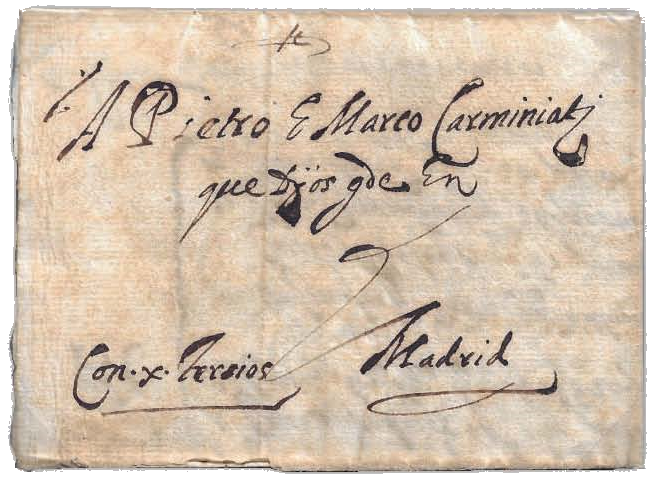 A Pietro E Marco Carminiatj
que Djos gde En
Madrid
Con . x . Terçios